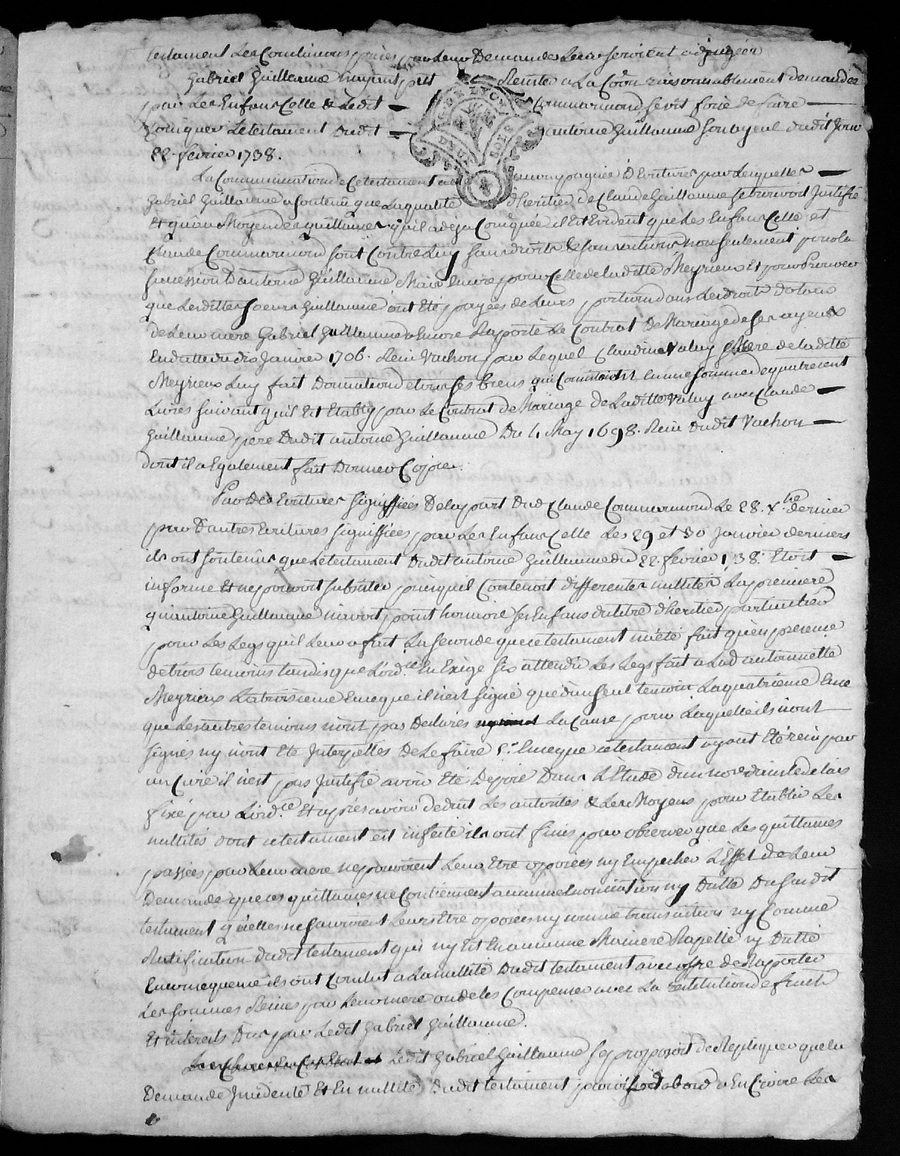 testament Les Conclusions prises par Leur Demande Leur seroient adjugées
Gabriel Guillaume nayant pas Resisté a La Coon raisonnablement demandée
par Les Enfans Celle & Ledit Commarmond sevit forcé de faire
Comuniquer Le testament Dudit antoine Guillaume son ayeul dudit Jour
22 fevrier 1738.
La Communication de Ce testament a été accompagnée d'Ecritures par Lesquelles
Gabriel Guillaume a soutenu que La qualité d'heritier de Claude Guillaume
Et qu'au Moyen des quittances qu'il a deja Comuniquées il Est Evident que Les Enfans Celle et
Claude Commarmond sont Contre Luy sans droits & sans actions non seulement pour la
succession D'antoine Guillaume Mais Encore pour Celle de Laditte Meyrieux Et pour Prouver
que Lesdittes soeurs Guillaume ont Eté payées de Leurs portions dans Les droits dotaux
de Leur mere Gabriel Guillaume a Encore Raporté Le Contrat De Mariage de ses ayeux
En datte du dix Janvier 1706. Reçu Vachon par Lequel Claudine Valuy Mere de laditte
Meyrieux Luy fait Donnation de tous ses biens qui Consistoient En une somme de quatre cent
Livres suivant qu'il Est Etably par Le Contrat de Mariage de Laditte Valuy avec Claude
Guillaume pere Dudit antoine Guillaume Du 4 May 1698. Reçu Dudit Vachon
dont il a Egalement fait Donner Copie.
Par Des Ecritures signiffiées De la part Dud Claude Commarmond Le 28. xbre dernier
par D'autres Ecritures signiffiées par Les Enfans Celle Les 29 et 30 Janvier derniers
ils ont soutenus que Le testament Dudit antoine Guillaume du 22 fevrier 1738. Etoit
informe Et ne pouvoit subsister puisqu'il Contenoit differentes nullités La premiere
qu'antoine Guillaume n'avoit point honnoré ses Enfans du titre d'heritier particulier
pour Les Legs qu'il Leur a fait La seconde que ce testament n'a été fait qu'en presence
de trois temoins tandis que L'ord.ce En Exige six attendu Les Legs fait a Lad antoinette
Meyrieux La troisieme En ce que il n'est signé que d'un seul temoin La quatrieme En ce
que Les autres temoins n'ont pas Declarés La Cause pour Laquelle ils n'ont
signés ny n'ont Eté Interpellés De Le faire 5.e En ce que ce testament ayant Eté reçu par
un Curé il n'est pas Justifié avoir Eté Deposé Dans L'Etude d'un nore dans Le delais
fixé par L'ord.ce Et aprés avoir deduit Les autorités & Les Moyens pour Etablir Les
nullités dont ce testament est infecté ils ont finis par observer que Les quittances
passées par Leur mere ne pouvoient Leur Etre opposées ny Empecher L'Effet de Leur
Demande que ces quittances ne Contiennent aucune Enonciation ny Datte Du susdit
testament qu'elles ne sauroient Leurs Etre opposées ny comme transaction ny Comme
Ratification Dudit testament qui n'y Est En aucune Maniere Rapellé ny Datté
En consequence ils ont Conclut a La nullité Dudit testament avec offre de Raporter
Les sommes Reçues par Leur mere ou de les Compenser avec La Restitution de fruits
Et interets Dus par Ledit Gabriel Guillaume.
Ledit Gabriel Guillaume se proposoit de Repliquer que la
Demande Incidente Et En nullité dudit testament d'abord a En Croire Les